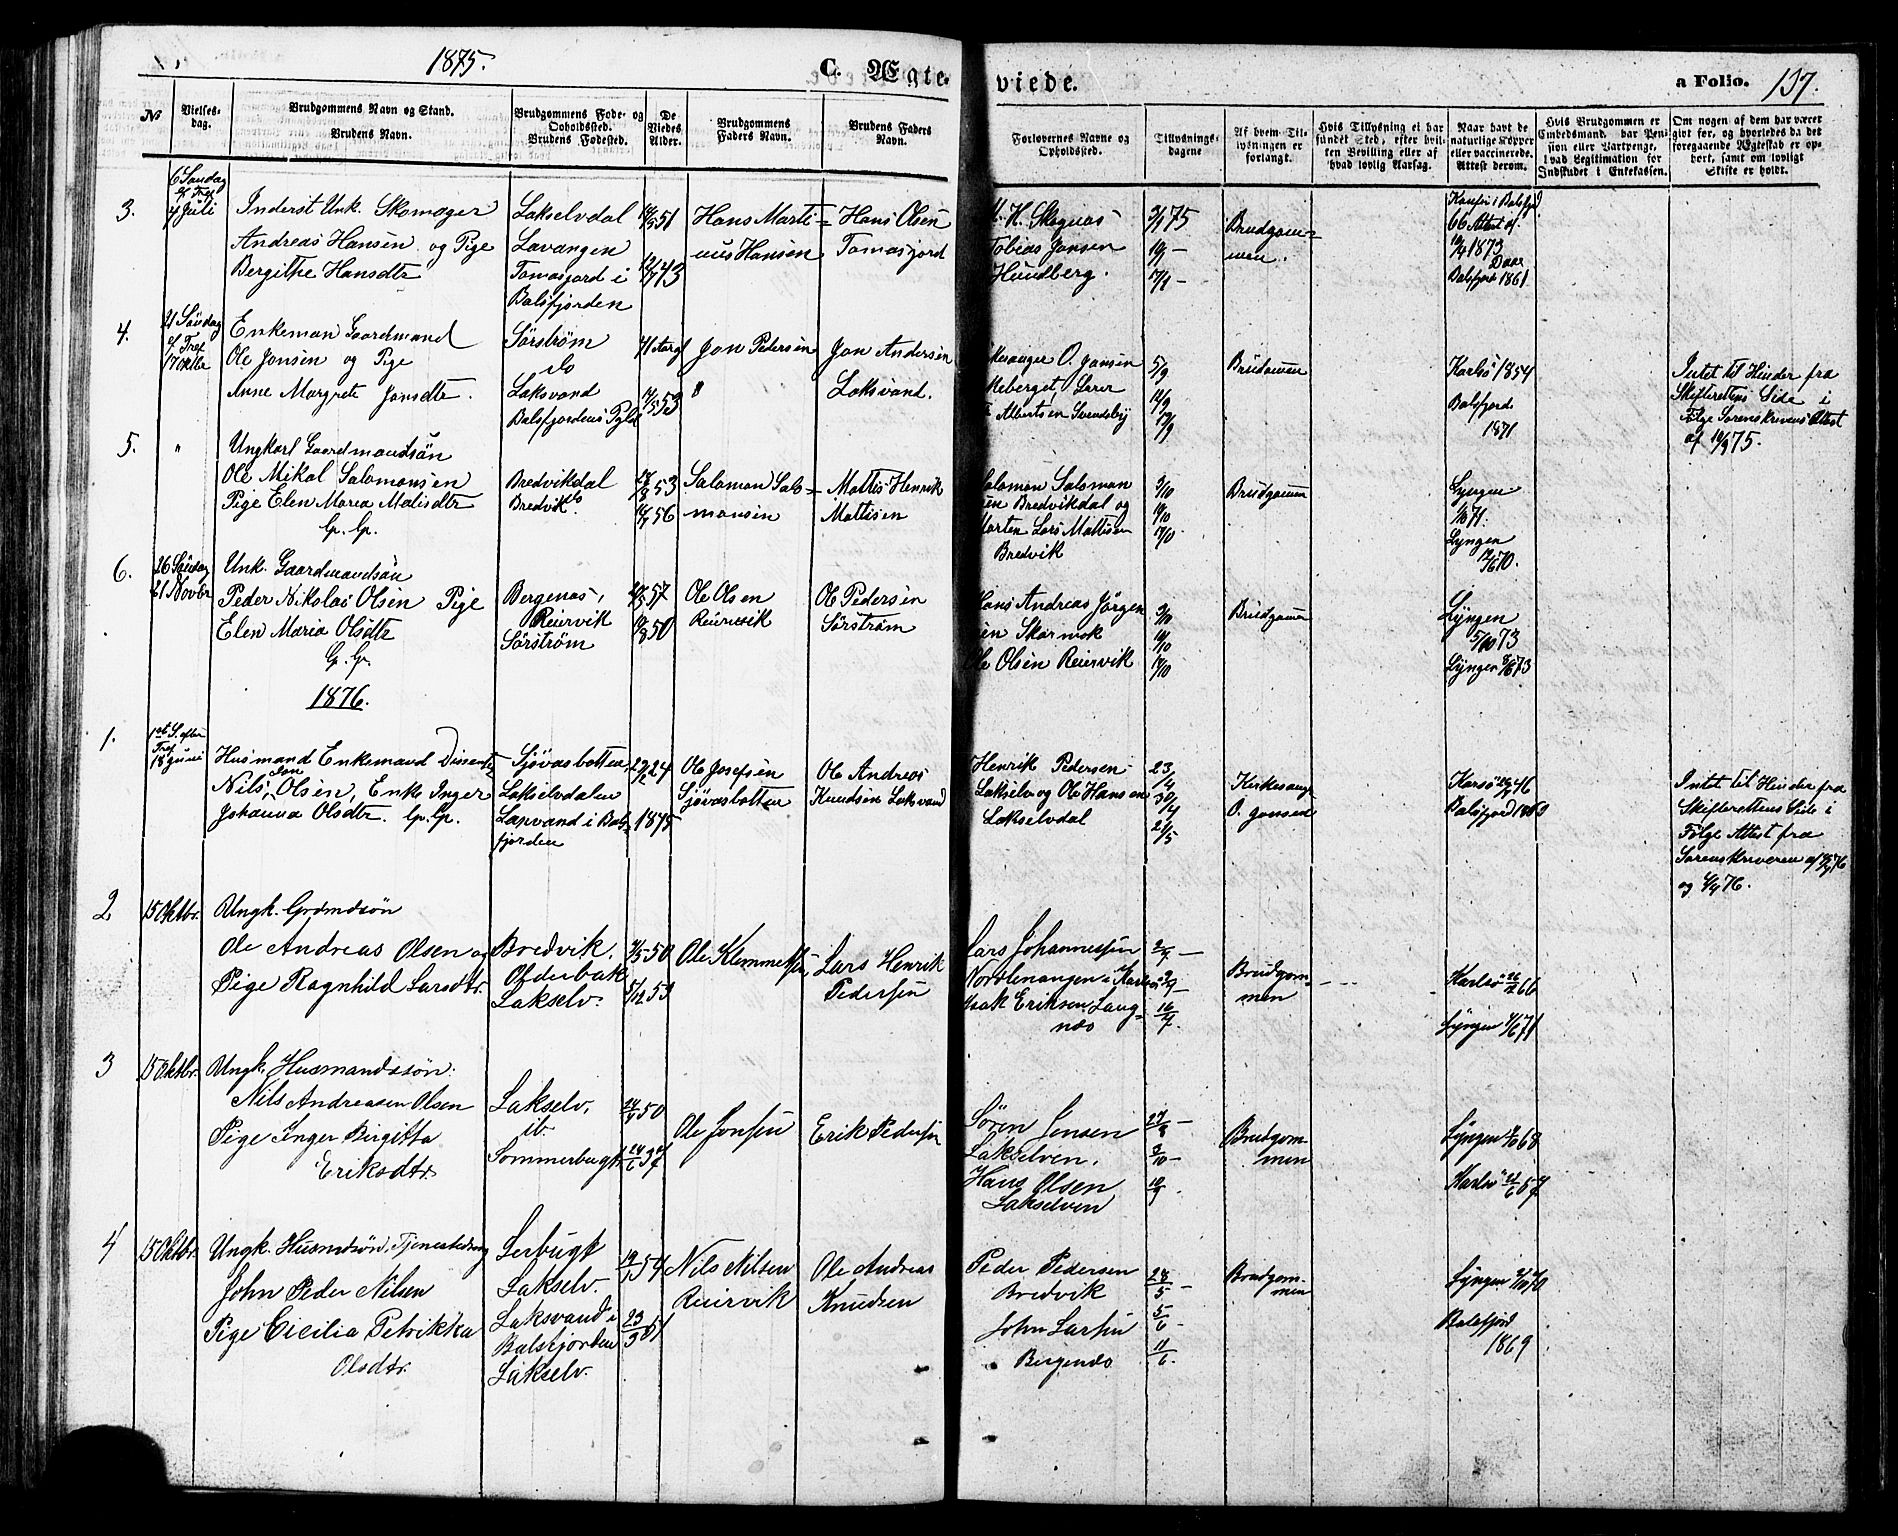 1875.
C. Ægte-
viede.
a Folio. 137.
No
Vielses-
dag.
Brudgommens Navn og Stand.
Brudens Navn.
Brudgommens Føde- og
Opholdssted.
Brudens Fødested.
De
Viedes
Alder.
Brudgommens
Faders Navn.
Brudens Faders
Navn.
Forlovernes Navne og
Opholdssted.
Tillysnings-
dagene
Af hvem Til-
lysningen er
forlangt.
Hvis Tillysning ei har
fundet Sted, efter hvil-
ken Bevilling eller af
hvad lovlig Aarsag.
Naar havt de
naturlige Kopper
eller vaccinerede.
Attest derom.
Hvis Brudgommen er
Embedsmand, har Pen-
sion eller Vartpenge,
hvad Legitimation for
Indskudet i Enkekassen.
Om nogen af dem har været
givt før, og hvorledes da det
foregaaende Ægteskab er op-
hørt, samt om lovligt
Skifte er holdt.
3.
6 Søndag
ef Tref
4 Juli
Inderst Unk. Skomager
Andreas Hansen og Pige
Bergithe Hansdtr
Lakselvdal
Lavangen
Tomasjord i
Balsfjorden
51
43
Hans Marti=
nus Hansen
Hans Olsen
Tomasjord
H. Skognæs
Tobias Jansen
Hundberg.
75
Brudgom=
men.
66 Attest af
1873
Balsfjord 1861
4.
21 Søndag
ef Tref
17 Oktbr
Enkeman Gaardmand
Ole Jonsen og Pige
Anne Margrete Jonsdtr.
Sørstrøm
do
Laksvand
Balsfjordens Pgld
53
Jon Pedersen
"
Jon Andersen
Laksvand.
O. Jansen
Albertsen Svendsby
5/9
12/9
Brudgomen
Karlsø 1854
Balsfjord
1871
Intet til Hinder fra
Skifterettens Side i
Følge Sorenskriverens Attest
af 75.
5.
"
Ungkarl Gaardmandsøn
Ole Mikal Salomonsen
Pige Elen Maria Matisdtr
Gp. Gp.
Bredvikdal
Bredvik
do
53
56
Salamon Salo=
monsen
Mattis Henrik
Mattisen
Salamon Salomon
sen Bredvikdal og
Morten Lars Mattisen
Bredvik
3/10
10/10
17/10
Brudgomen
Lyngen
71.
Lyngen
70.
6.
26 Søndag
21 Novbr
Unk. Gaardmandsøn
Peder Nikolai Olsen Pige
Elen Maria Olsdtr
Gp. Gp.
Bergenæs,
Reiervik
Sørstrøm
57
50
Ole Olsen
Reiervik
Ole Pedersen
Sørstrøm
Hans Andreas Jørgen
sen Skarmok
Ole Olsen Reiervik
3/10
10/10
Brudgomen
Lyngen
73
Lyngen 73
1876.
1.
1st S. efter
Tref
18 Juni
Husmand Enkemand Dissenter
Nils Jon Olsen, Enke Inger
Johanna Olsdtr. Gp. Gp.
Sjøvasbotten
Lakselvdalen
Laxvand i Bals
fjorden
24
Ole Josefsen
Sjøvasbotten
Ole Andreas
Knudsen Laksvand
Henrik Pedersen
Lakselv og Ole Hansen
Lakselvdal
23
30/4
21/5
Kirkesang
O. Jonsen
46
Balsfjord
Intet til Hinder fra
Skifterettens Side i
Følge Attest fra
Sorenskriveren af 76
og 76.
2
15 Oktbr.
Ungk. Grdmdsøn
Ole Andreas Olsen og
Pige Ragnhild Larsdtr.
Bredvik.
Olderbak
Lakselv.
50
5/12 53
Ole Klemmetsen
Lars Henrik
Pedersen
Lars Johannessen
Nordlenangen i Karlsø
Isak Eriksen Lang-
næs
Brudgom-
men
Karlsø 66
Lyngen 71
3
15 Oktbr.
Ungk. Husmandssøn:
Nils Andreasen Olsen
Pige Inger Birgitta
Eriksdtr.
Lakselv.
ib.
Sommerbugt
50
37
Ole Jonsen
Erik Pedersen
Søren Jensen
Lakselven.
Hans Olsen
Lakselven
27/8
Brudgom-
men
Lyngen 68
Karlsø 57
4
15 Oktbr.
Ungk. Husmdsøn, Tjenestedreng
John Peder Nilsen
Pige Cicilia Petrikka
Olsdtr.
Lerbugt
Lakselv.
Laksvand i
Balsfjorden
Lakselv.
54
23/3 51
Nils Nilsen
Reiervik
Ole Andreas
Knudsen
Peder Pedersen
Bredvik
John Larsen
Bergenæs
28/5
5/6
11/6
Brudgom-
men
Lyngen 70
Balsfjord
1869